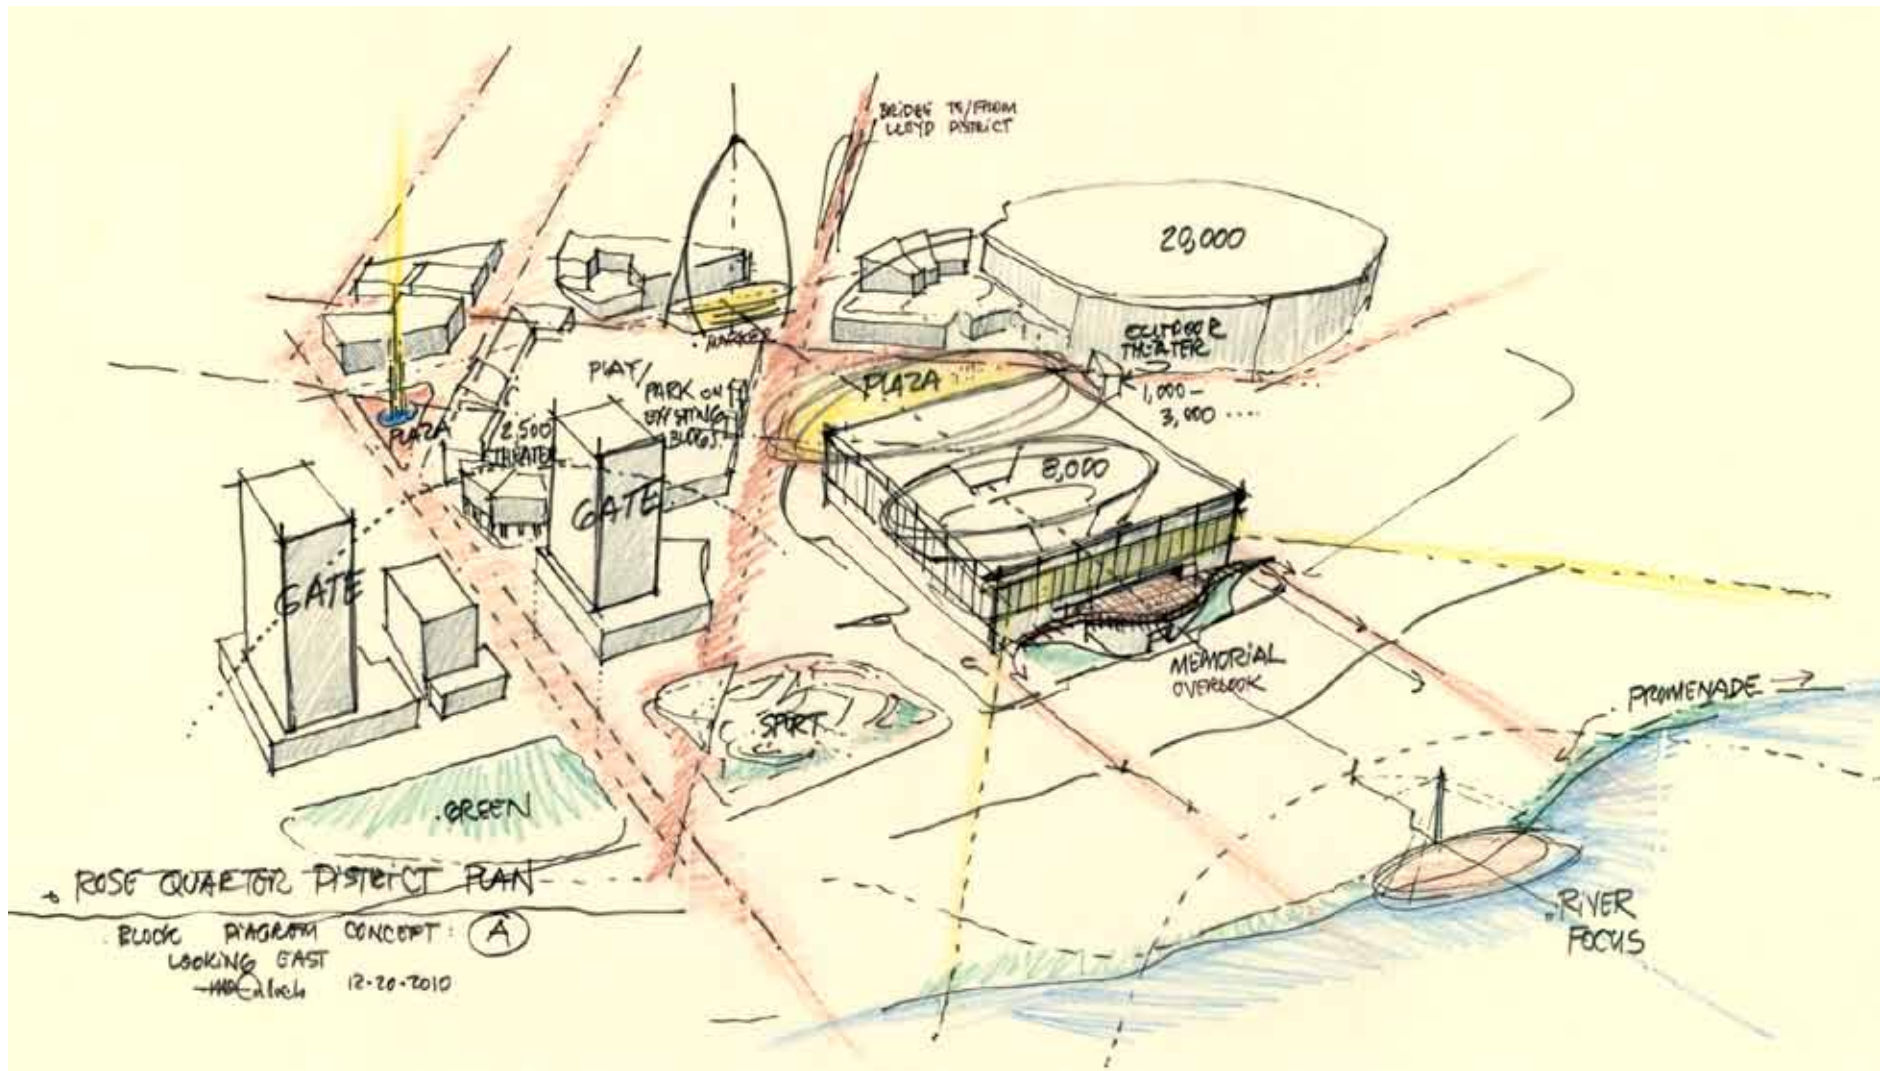 BRIDGE TO/FROM
LLOYD DISTRICT
20,000
OUTDOOR
THEATER
1,000 -
3,000 ....
. MARKER
PLAY/
PARK ON
EXISTING
BLDGS.
PLAZA
PLAZA
2,500
THEATER
8,000
GATE
GATE
MEMORIAL
OVERLOOK
PROMENADE →
SPORT
.GREEN
RIVER
FOCUS
ROSE QUARTER DISTRICT PLAN
BLOCK DIAGRAM CONCEPT: A
LOOKING EAST
12-20-2010